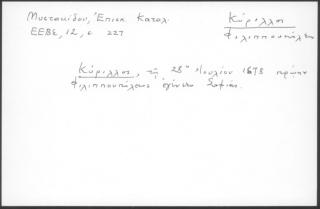 Μυστακίδου, Ἐπισκ. Καταλ.
ΕΕΒΣ, 12, σ. 227
Κύριλλος
Φιλιππουπόλεως
Κύριλλος, τῇ 28ῃ Ἰουλίου 1678 πρώην
Φιλιππουπόλεως ἐγένετο Σοφίας.